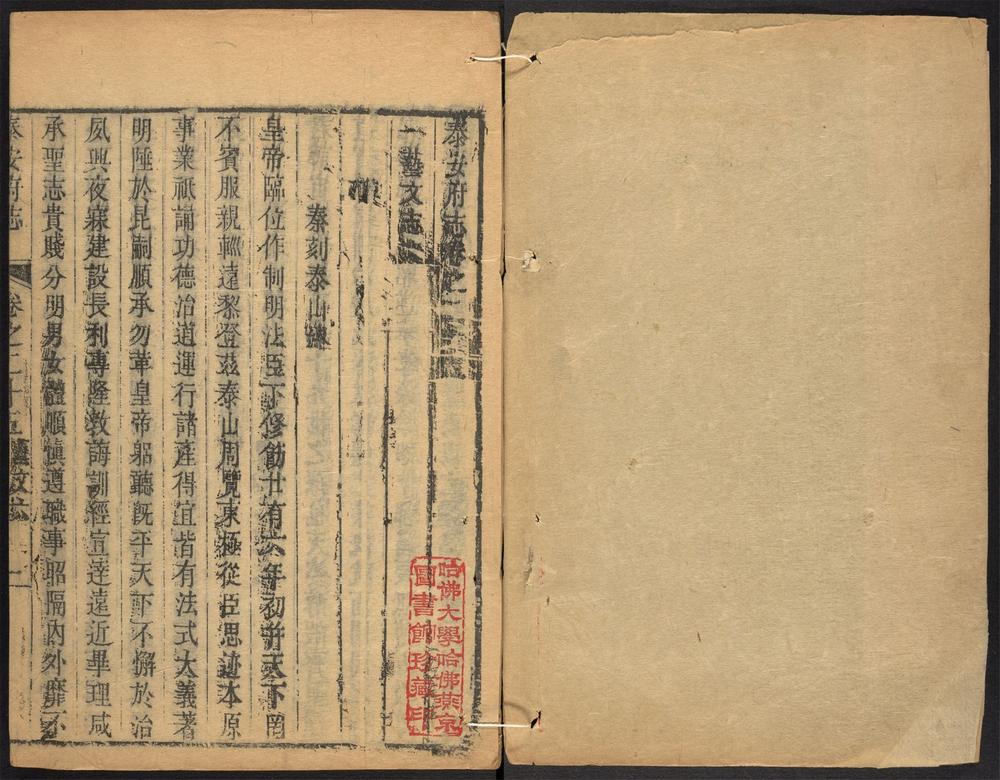 泰安府志卷之二
藝文志
秦刻泰山
皇帝臨位作制明法臣下修飭廿有六年初并天下罔
不賓服親輙遠黎登茲泰山周覽東極從臣思迹本原
事業祗誦功德治道運行諸產得宜皆有法式大義著
明陲於昆嗣順承勿革皇帝躬聽旣平天下不懈於治
夙興夜寐建設長利專隆教誨訓經宣達遠近畢理咸
承聖志貴賤分明男女體順愼遵職事昭隔內外靡不
泰安府志 卷之二十 藝文志 一
哈佛大學哈佛燕京
圖書館珍藏印